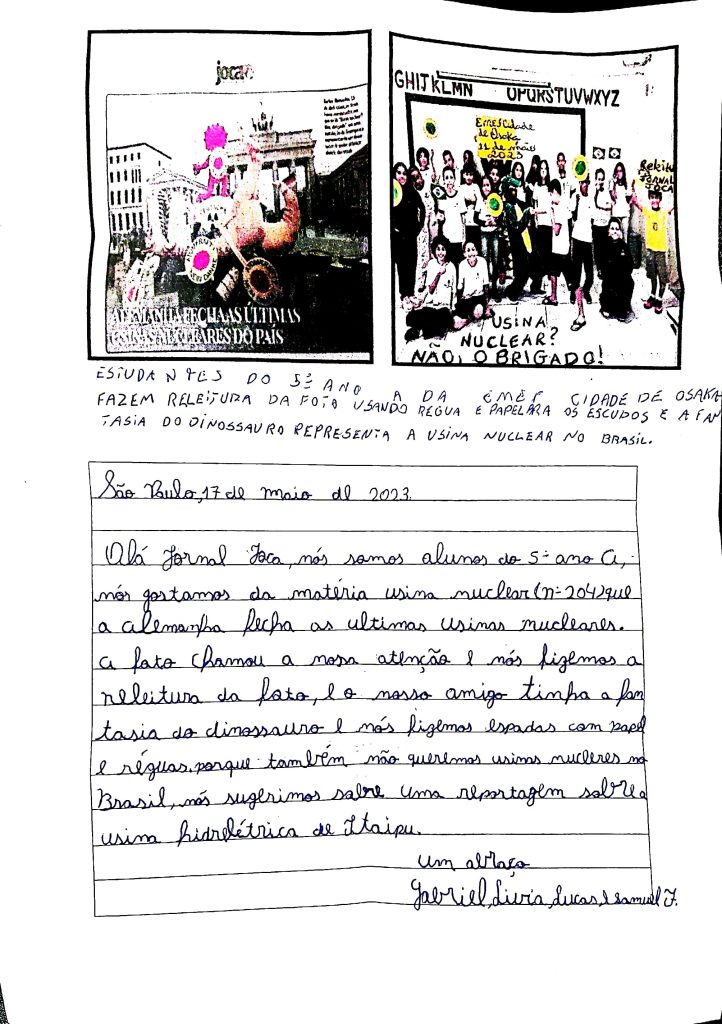 joca
ALEMANHA FECHA AS ÚLTIMAS
USINAS NUCLEARES DO PAÍS
GHIJKLMN OPQRSTUVWXYZ
Emef Cidade
de Osaka
11 de maio
2023
JORNAL
JOCA
USINA
NUCLEAR?
NÃO, OBRIGADO!
ESTUDANTES DO 5º ANO A DA EMEF CIDADE DE OSAKA
FAZEM RELEITURA DA FOTO USANDO RÉGUA E PAPEL PARA OS ESCUDOS E A FAN
TASIA DO DINOSSAURO REPRESENTA A USINA NUCLEAR NO BRASIL.
São Paulo, 17 de maio de 2023.
Olá Jornal Joca, nós somos alunos do 5º ano A,
nós gostamos da matéria usina nuclear (nº 204) que
a alemanha fecha as ultimas usinas nucleares.
A foto chamou a nossa atenção e nós fizemos a
releitura da foto, e o nosso amigo tinha a fan
tasia do dinossauro e nós fizemos espadas com papel
e réguas, porque também não queremos usinas nucleres no
Brasil, nós sugerimos sobre uma reportagem sobre a
usina hidrelétrica de Itaipu.
um abraço
Gabriel, Livia, Lucas, e Samuel J.